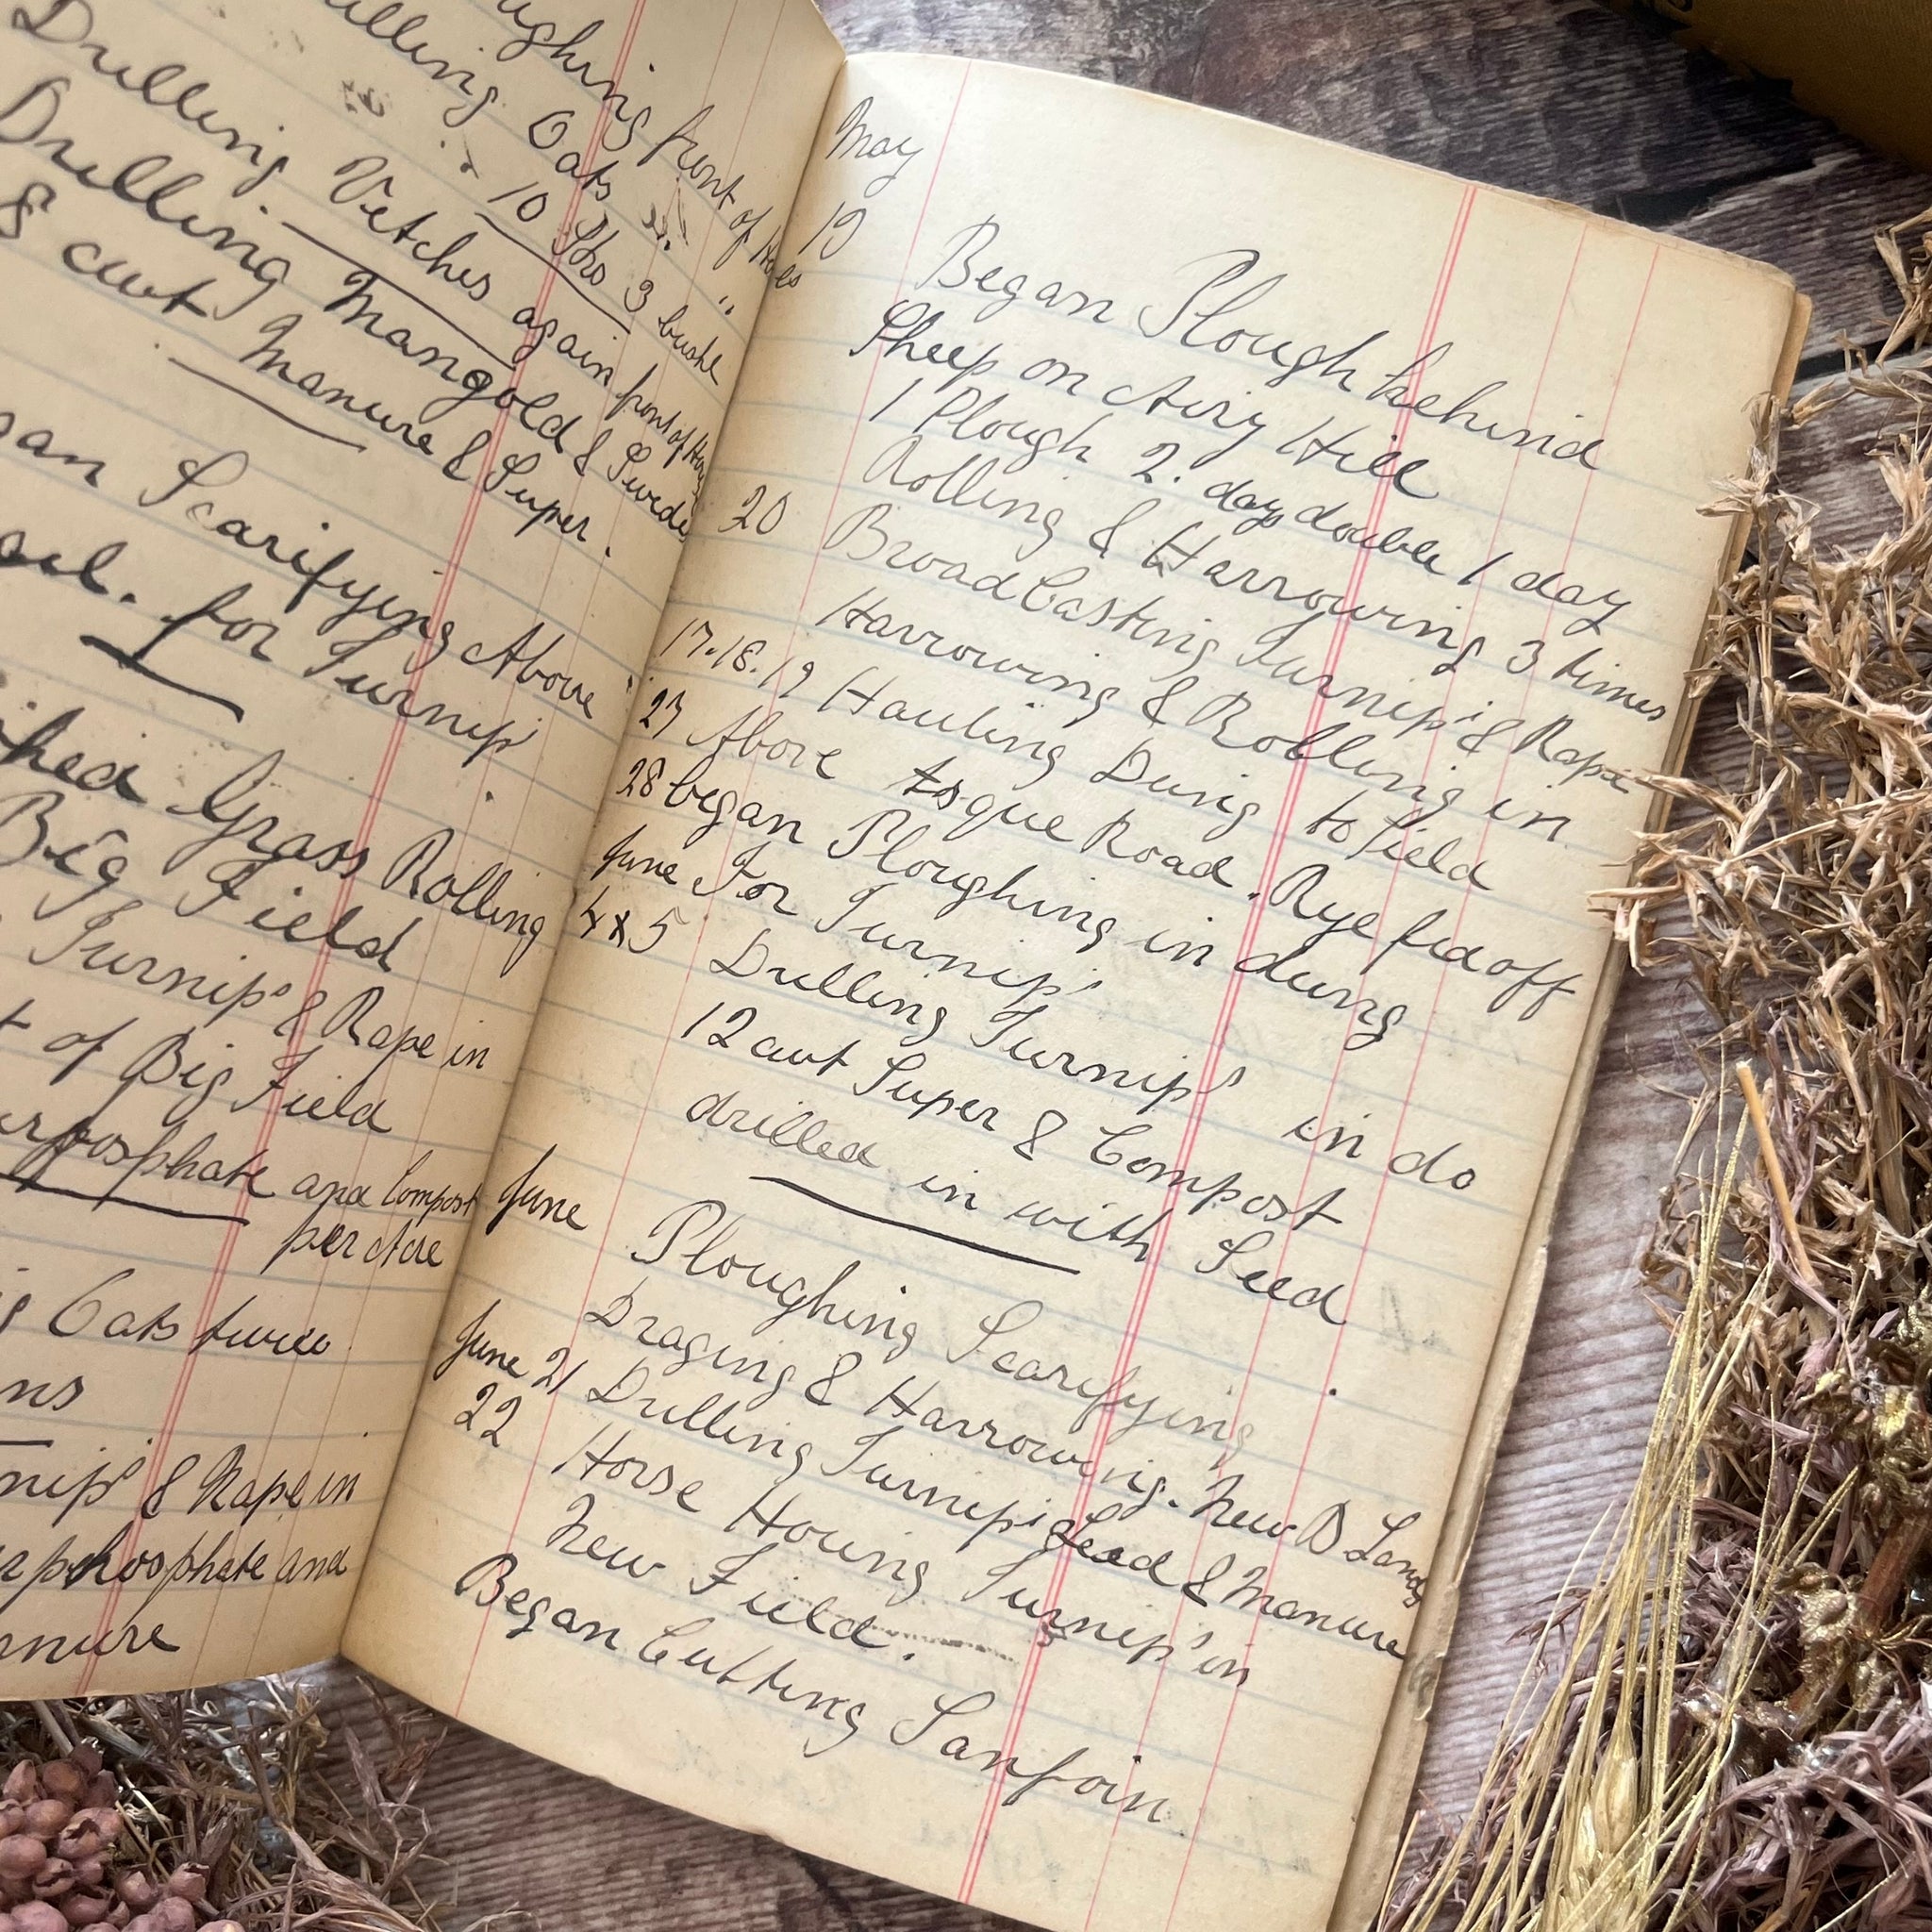 ughing front of Ho
es
illing Oats "
10 lbs 3 bushe
Drilling Vetches again front of Hou
Drilling Mangold & Swede
8 cwt Manure & Super.
gan Scarifying Above
. for Turnip'
hed Grass Rolling
Big Field
Turnips & Rape in
t of Big Field
erposphate and Compost
per Acre
g Oats twice
ns
nip' & Rape in
rphosphate and
anure
May
19 Began Plough behind
Sheep on Airy Hill
1 Plough 2. days double 1 day
Rolling & Harrowing 3 times
20 BroadCasting Turnips & Rape
Harrowing & Rolling in
17.18.19 Hauling Dung to field
23 Above Asque Road. Rye fed off
28 began Ploughing in dung
June For Turnip'
4 & 5 Drilling Turnip' in do
12 cwt Super & Compost
drilled in with Seed
June Ploughing Scarifying
Draging & Harrowing. New B Land
June 21 Drilling Turnip Seed & Manure
22 Horse Houing Turnip' in
New Field.
Began Cutting Sanfoin